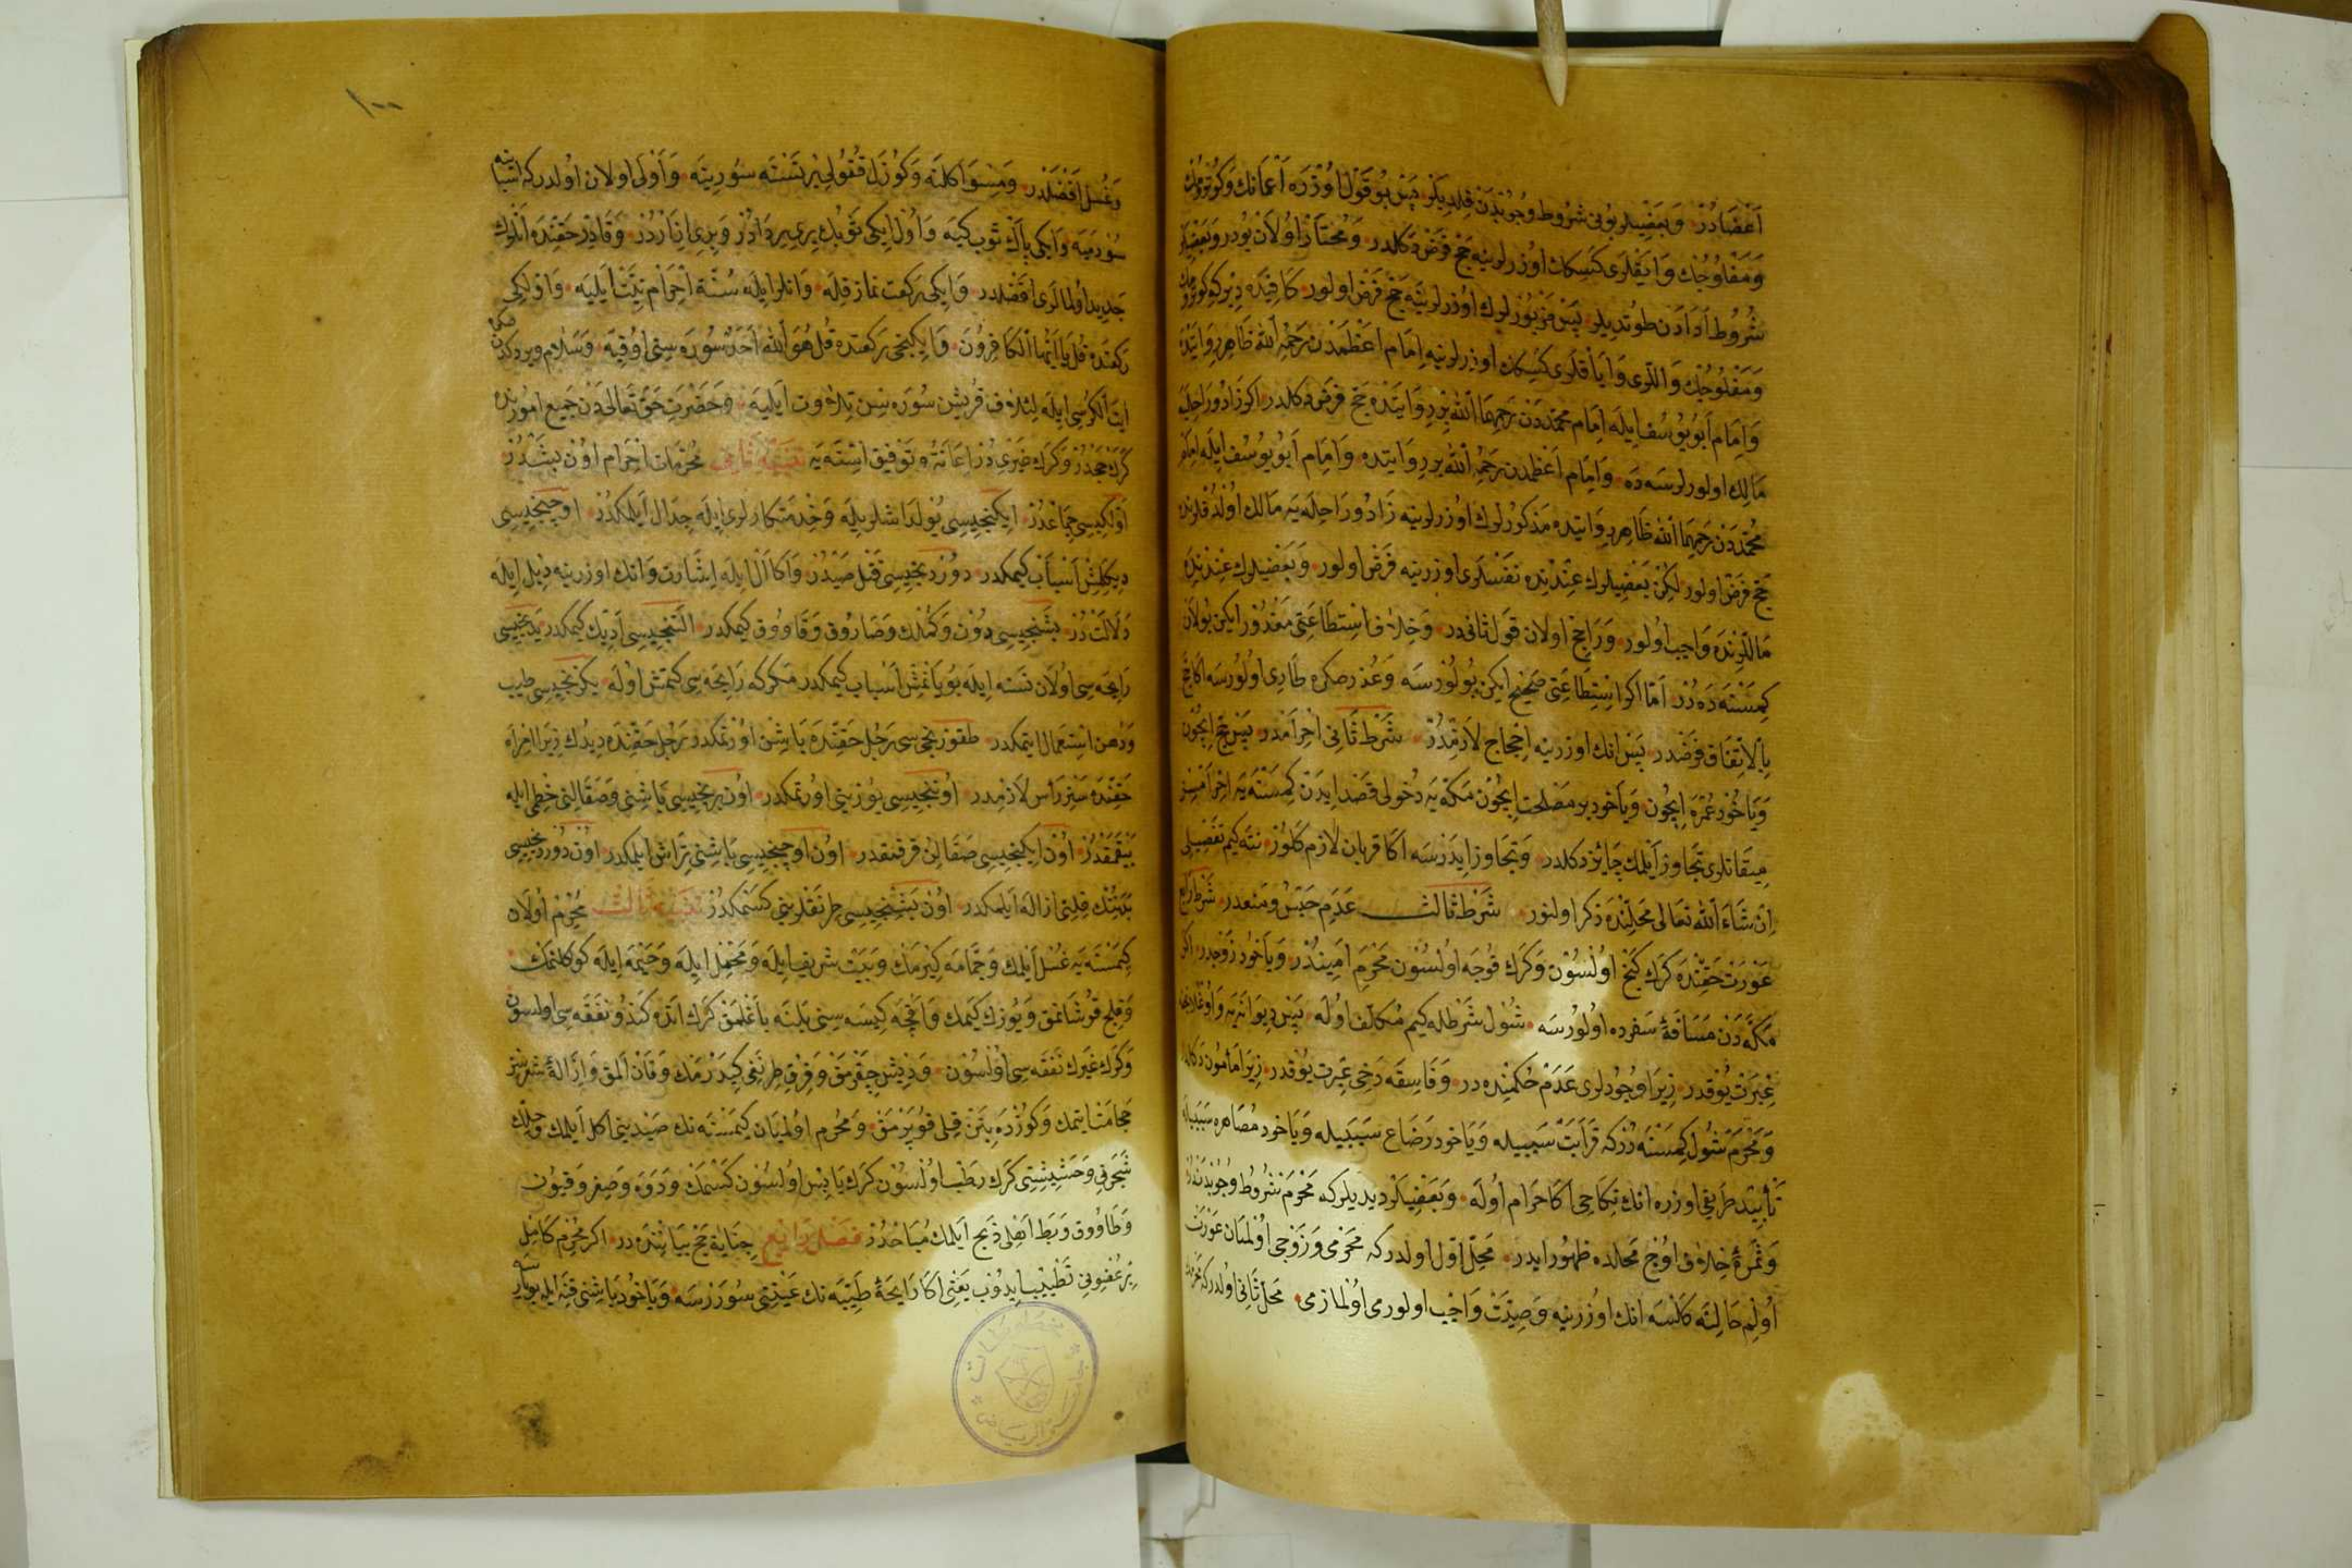 اعضادر وبعضيلر بونى شروط وجوبدن قلديلر پس بو قول اوزره اعمانك وكوتورمك
ومفلوجك وايقلرى كسيك اوزرلرينه حج فرض دكلدر ومختار اولان بودر وبعضيلر
شروط ادادن طوتديلر پس مزبورلرك اوزرلرينه حج فرض اولور كافيده ديركه كوتورمك
ومفلوجك واللرى واياقلرى كسيك اوزرلرينه امام اعظمدن رحمه الله ظاهر روايتده
وامام ابو يوسف ايله امام محمددن رحمهما الله بر روايتده حج فرض دكلدر اكر زاد وراحليه
مالك اولورلرسه ده وامام اعظمدن رحمه الله بر روايتده وامام ابو يوسف ايله امام
محمددن رحمهما الله ظاهر روايتده مذكورلرك اوزرلرينه زاد وراحله يه مالك اولدقلرنده
حج فرض اولور لكن بعضيلرك عندنده نفسلرى اوزرينه فرض اولور وبعضيلرك عندنده
ماللرنده واجب اولور وراجح اولان قول ثانيدر وخلاف استطاعتى معذور ايكن بولان
كمسنه ده در اما اكر استطاعتى صحيح ايكن بولورسه وعذر صكره طارى اولورسه اكا حج
بالاتفاق فرضدر پس انك اوزرينه احجاج لازمدر شرط ثانى احرامدر پس حج ايچون
وياخود عمره ايچون وياخود بر مصلحت ايچون مكه يه دخولى قصد ايدن كمسنه يه احرامسز
ميقاتلرى تجاوز ايلمك جايز دكلدر وتجاوز ايدرسه اكا قربان لازم كلور نته كيم تفصيلى
ان شاء الله تعالى محلنده ذكر اولنور شرط ثالث عدم حبس ومنعدر شرط رابع
عورت حقنده كرك كنج اولسون وكرك قوجه اولسون محرم اميندر وياخود زوجدر اكر
مكه دن مسافة سفرده اولورسه شول شرطله كيم مكلف اوله پس ديوانه يه واوغلانجغه
عبرت يوقدر زيرا وجودلرى عدم حكمنده در وفاسقه دخى عبرت يوقدر زيرا مأمون دكلدر
ومحرم شول كمسنه در كه قرابت سببيله وياخود رضاع سببيله وياخود مصاهره سببيله
تأبيد طريقى اوزره انك نكاحى اكا حرام اوله وبعضيلر ديديلر كه محرم شروط وجوبدندر
وثمرۀ خلاف اوچ محلده ظهور ايدر محل اول اولدر كه محرمى وزوجى اولميان عورت
اولم حالنه كلسه انك اوزرينه وصيت واجب اولورمى اولمازمى محل ثانى اولدر كه محرمك
١٠٠
وغسل افضلدر ومسواكلنه وكوزل قوقولى بر نسنه سورينه واولى اولان اولدر كه اثبابنه
سورميه وايكى پاك ثوب كيه واول ايكى ثوبك برى بر ردادر وبرى ازاردر وقادر حقنده انلرك
جديد اولمالرى افضلدر وايكى ركعت نماز قله وانلر ايله سنة احرام نيت ايليه واولكى
ركعتده قل يا ايها الكافرون وايكنجى ركعتده قل هو الله احد سوره سنى اوقيه وسلام ويردكدن صكره
اية الكرسى ايله لئلاف قريش سوره سن تلاوت ايليه وحضرت حق تعالى دن جميع امورنده
كرك حجدر وكرك غيرى در اعانة وتوفيق استيه تنبيه ثانى محرمات احرام اون بشدر
اولكيسى جماعدر ايكنجيسى يولداشلريله وخدمتكارلرى ايله جدال ايلمكدر اوچنجيسى
ديكلمش اسباب كيمكدر دوردنجيسى قتل صيددر واكا ال ايله اشارت وانك اوزرينه ديل ايله
دلالتدر بشنجيسى دون وكملك وصاروق وقاووق كيمكدر التنجيسى اديك كيمكدر يدنجيسى
رايحه سى اولان نسنه ايله بويانمش اسباب كيمكدر مكركه رايحه سى كتمش اوله سكزنجيسى طيب
ودهن استعمال ايتمكدر طقوزنجى سى رجل حقنده باشن اورتمكدر رجل حقنده ديدك زيرا امرأه
حقنده ستر رأس لازمدر اوننجيسى يوزينى اورتمكدر اون برنجيسى باشنى وصقالنى خطمى ايله
يقمقدر اون ايكنجيسى صقالن قرقمقدر اون اوچنجيسى باشنى تراش ايلمكدر اون دوردنجيسى
بدنك قلنى ازاله ايلمكدر اون بشنجيسى طرنقلرينى كسمكدر تنبيه ثالث محرم اولان
كمسنه يه غسل ايلمك وحمامه كيرمك وبيت شريف ايله ومحمل ايله وخيمه ايله كولكلنمك
وقلج قوشانمق ويوزك كيمك واقچه كيسه سنى بلنه باغلمق كرك انده كندو نفقه سى اولسون
وكرك غيرك نفقه سى اولسون وديش چقرمق وقرق طرنغى كيدرمك وقان المق وازالة شعرسز
حجامت ايتمك وكوزده بتن قلى قوپرمق ومحرم اولميان كمسنه نك صيدينى اكل ايلمك وحلك
شجرنى وحشيشنى كرك رطب اولسون كرك يابس اولسون كسمك ودوه وصغر وقيون
وطاووق وبط اهلى ذبح ايلمك مباحدر فصل رابع جناية حج بياننده در اكر محرم كامل
بر عضونى تطييب ايدوب يعنى اكا رايحۀ طيبه نك عيننى سوررسه وياخود باشنى قنه ايله بويارسه